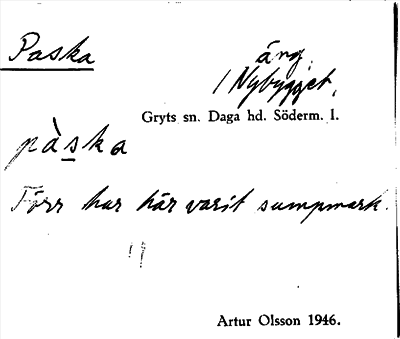 Paska
äng
/ Nybygget,
Gryts sn. Daga hd. Söderm. l.
pàska
Förr har här varit sumpmark.
Artur Olsson 1946.